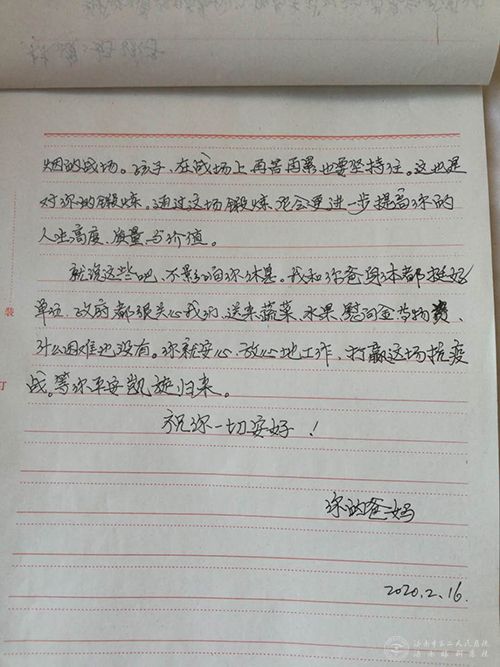 烟的战场。孩子、在战场上再苦再累也要坚持住。这也是
对你的锻炼。通过这场锻炼、也会更进一步提高你的
人生高度、质量与价值。
就说这些吧、不影响你休息。我和你爸身体都挺好
单位、政府都很关心我们、送来蔬菜、水果、慰问金等物资、
什么困难也没有。你就安心、放心地工作、打赢这场抗疫
战。等你平安凯旋归来。
祝你一切安好！
你的爸妈
2020.2.16.
装
订
济南市第二人民医院
济南眼科医院